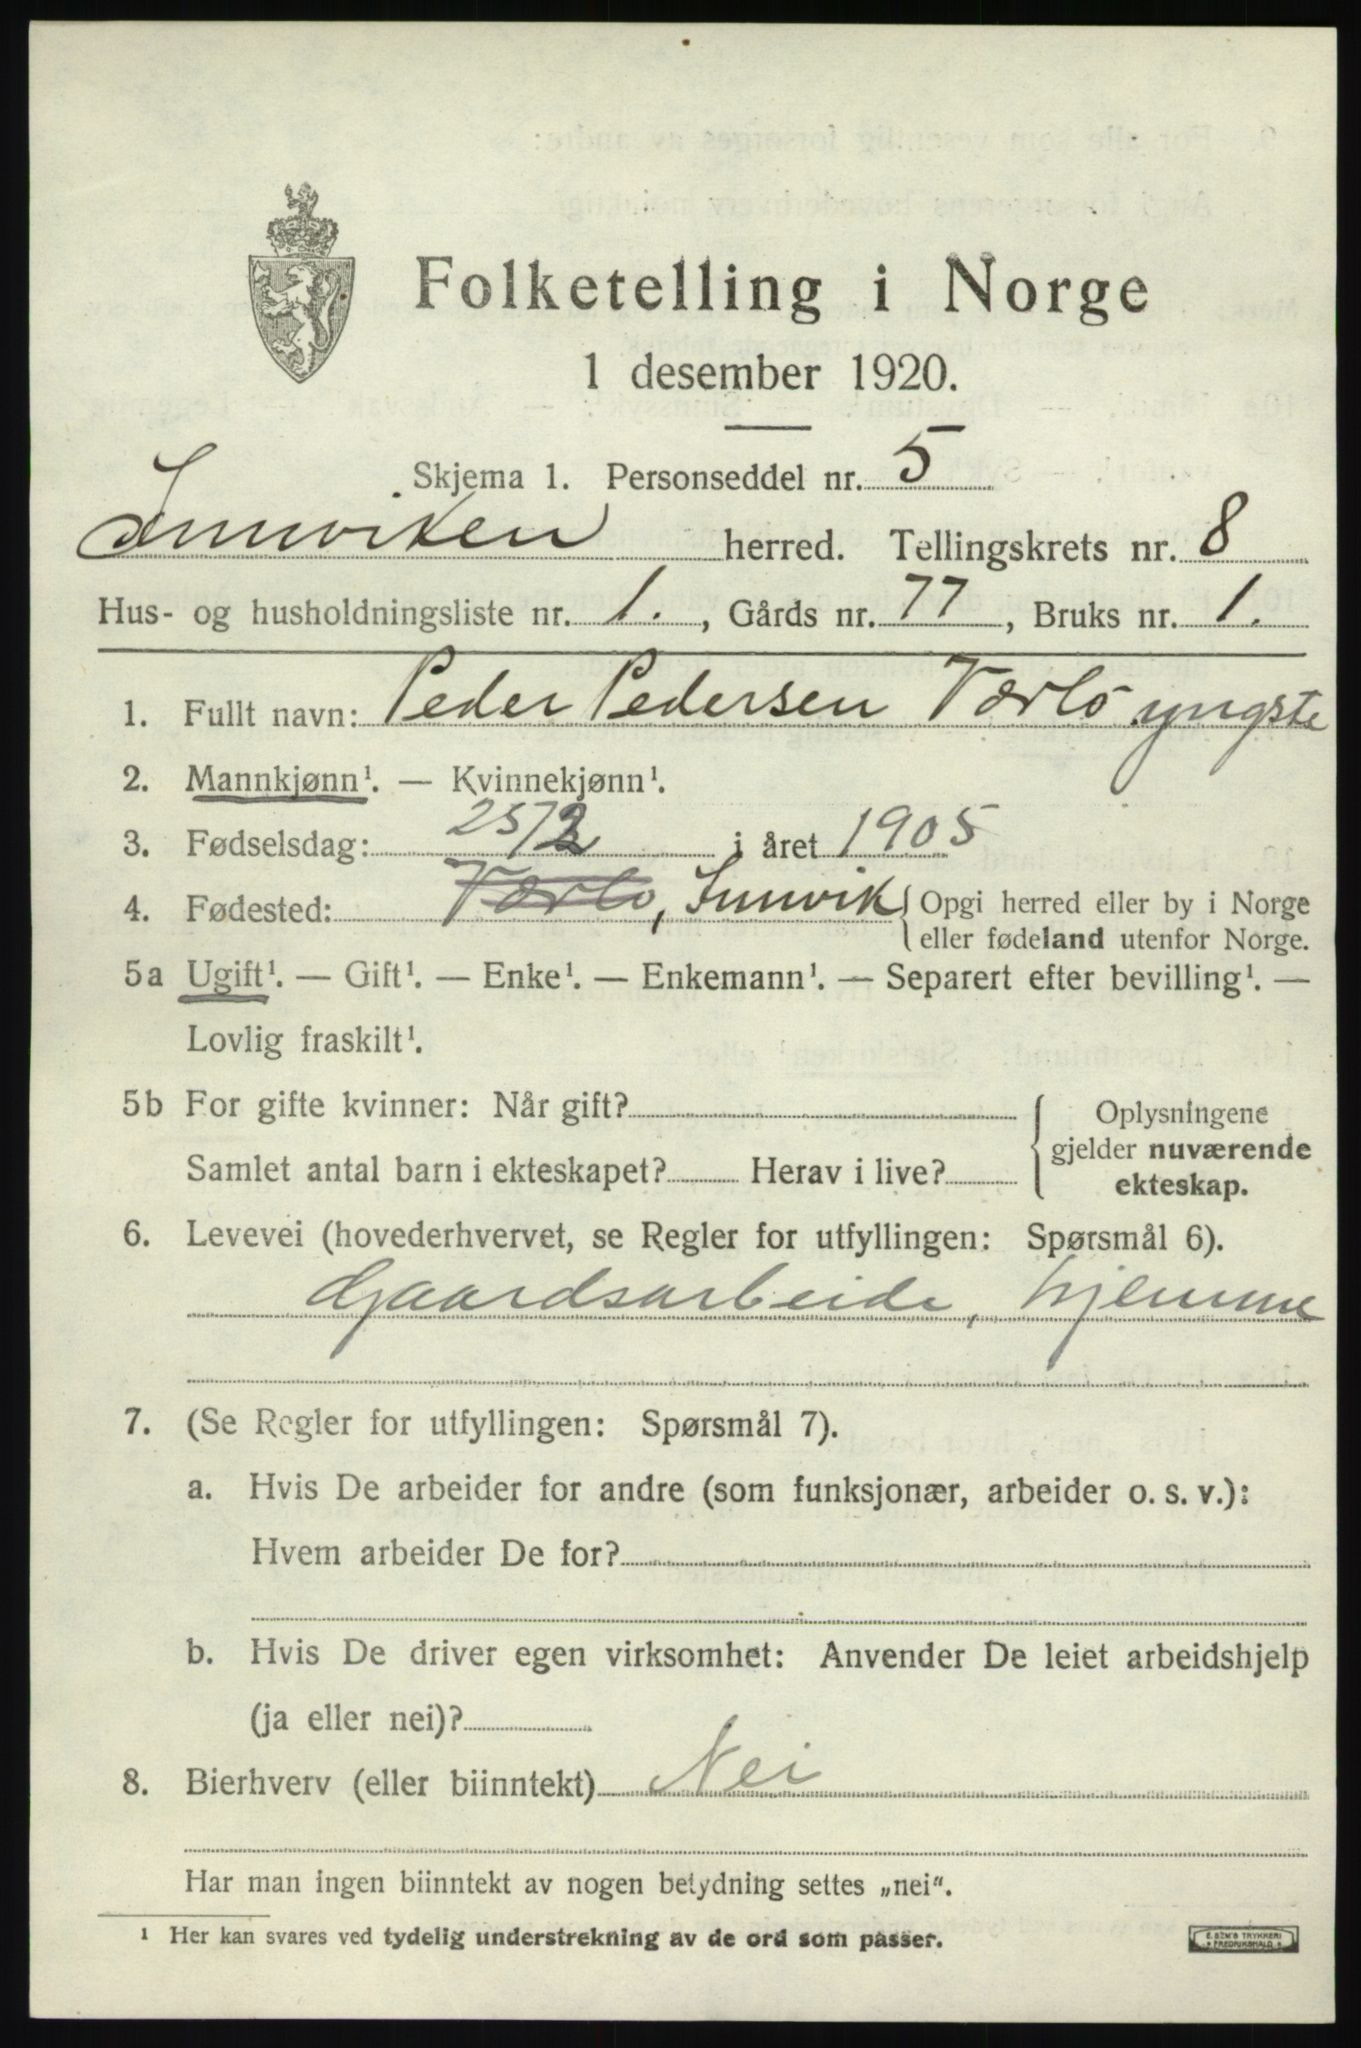 Folketelling i Norge
1 desember 1920.
Skjema 1. Personseddel nr. 5
Innviken herred. Tellingskrets nr. 8
Hus- og husholdningsliste nr. 1., Gårds nr. 77, Bruks nr. 1.
1. Fullt navn: Peder Pedersen Værlo yngste
2. Mannkjønn¹. — Kvinnekjønn¹.
3. Fødselsdag: 25/2 i året 1905
4. Fødested: Værlo, Innvik { Opgi herred eller by i Norge
eller fødeland utenfor Norge.
5a Ugift¹. — Gift¹. — Enke¹. — Enkemann¹. — Separert efter bevilling¹. —
Lovlig fraskilt¹.
5b For gifte kvinner: Når gift?
Samlet antal barn i ekteskapet? Herav i live?
{ Oplysningene
gjelder nuværende
ekteskap.
6. Levevei (hovederhvervet, se Regler for utfyllingen: Spørsmål 6).
Gaardsarbeide, hjemme
7. (Se Regler for utfyllingen: Spørsmål 7).
a. Hvis De arbeider for andre (som funksjonær, arbeider o. s. v.):
Hvem arbeider De for?
b. Hvis De driver egen virksomhet: Anvender De leiet arbeidshjelp
(ja eller nei)?
8. Bierhverv (eller biinntekt) Nei
Har man ingen biinntekt av nogen betydning settes „nei“.
¹ Her kan svares ved tydelig understrekning av de ord som passer.
E. SEM'S TRYKKERI
FREDRIKSHALD